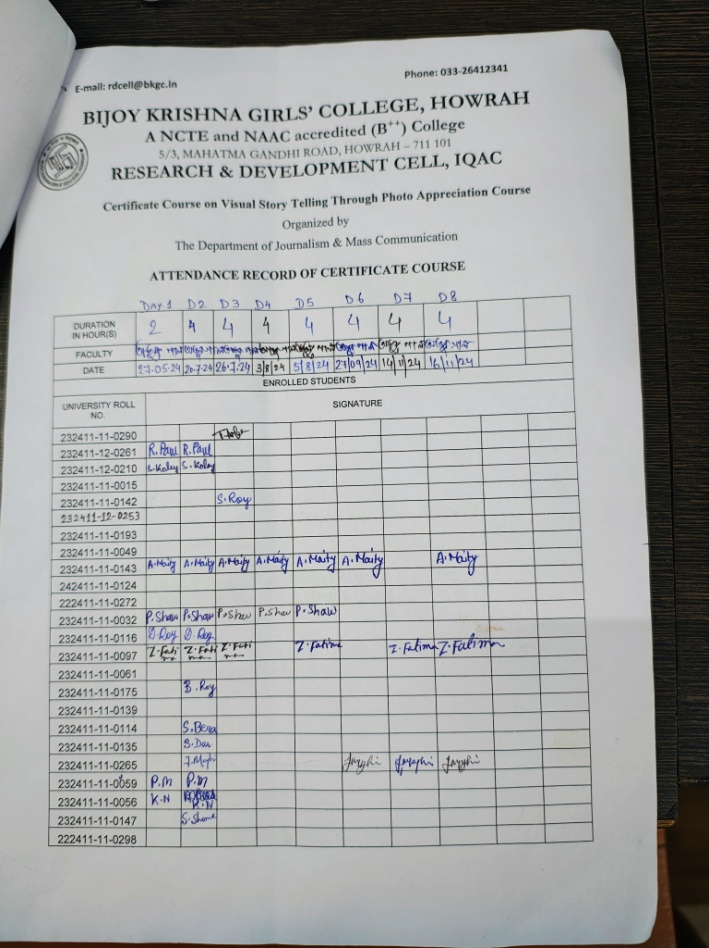 E-mail: rdcell@bkgc.in
Phone: 033-26412341
BIJOY KRISHNA GIRLS' COLLEGE, HOWRAH
A NCTE and NAAC accredited (B++) College
5/3, MAHATMA GANDHI ROAD, HOWRAH – 711 101
RESEARCH & DEVELOPMENT CELL, IQAC
Certificate Course on Visual Story Telling Through Photo Appreciation Course
Organized by
The Department of Journalism & Mass Communication
ATTENDANCE RECORD OF CERTIFICATE COURSE
DAY 1 D2 D3 D4 D5 D6 D7 D8
DURATION IN HOUR(S) 2 4 4 4 4 4 4 4
FACULTY
DATE 27-05-24 20-7-24 26-7-24 3/8/24 5/8/24 27/09/24 14/11/24 16/11/24
ENROLLED STUDENTS
UNIVERSITY ROLL NO. SIGNATURE
232411-11-0290
232411-12-0261 R. Paul R. Paul
232411-12-0210 S. Koley S. Koley
232411-11-0015
232411-11-0142 S. Roy
232411-12-0253
232411-11-0193
232411-11-0049
232411-11-0143 A. Maity A. Maity A. Maity A. Maity A. Maity A. Maity A. Maity
242411-11-0124
222411-11-0272
232411-11-0032 P. Shaw P. Shaw P. Shaw P. Shaw P. Shaw
232411-11-0116 D. Roy D. Roy
232411-11-0097 Z. Fatima Z. Fatima Z. Fatima Z. Fatima Z. Fatima Z. Fatima
232411-11-0061
232411-11-0175 B. Roy
232411-11-0139
232411-11-0114 S. Bera
232411-11-0135 S. Das
232411-11-0265
232411-11-0059 P.M P.M
232411-11-0056 K.N K.N
232411-11-0147
222411-11-0298